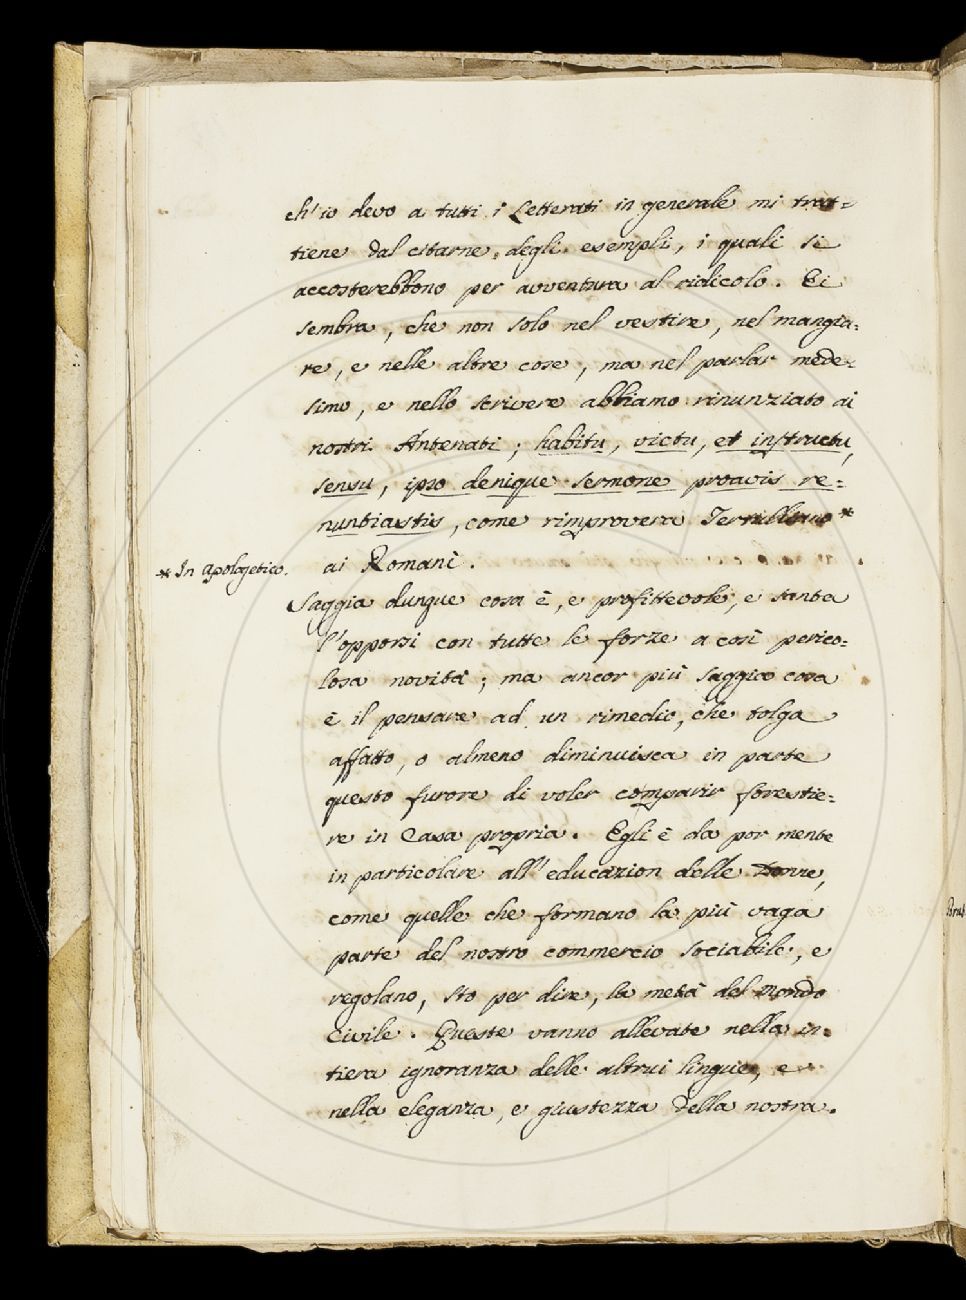 ch' io devo a tutti i Letterati in generale mi trat=
tiene dal citarne degli esempli, i quali si
accosterebbono per avventura al ridicolo. Ei
sembra, che non solo nel vestire, nel mangia=
re, e nelle altre cose, ma nel parlar mede=
simo, e nello scrivere abbiamo rinunziato ai
nostri Antenati; habitu, victu, et instructu,
sensu, ipso denique sermone proavis re=
nuntiastis, come rimprovera Tertulliano *
* In Apologetico. ai Romani.
Saggia dunque cosa è, e profittevole, e santa
l'opporsi con tutte le forze a così perico=
losa novità; ma ancor più saggia cosa
è il pensare ad un rimedio, che tolga
affatto, o almeno diminuisca in parte
questo furore di voler comparir forestie=
re in Casa propria. Egli è da por mente
in particolare all' educazion delle Donne,
come quelle che formano la più vaga
parte del nostro commercio sociabile, e
regolano, sto per dire, la metà del Mondo
Civile. Queste vanno allevate nella in=
tiera ignoranza delle altrui lingue, e
nella eleganza, e giustezza della nostra.